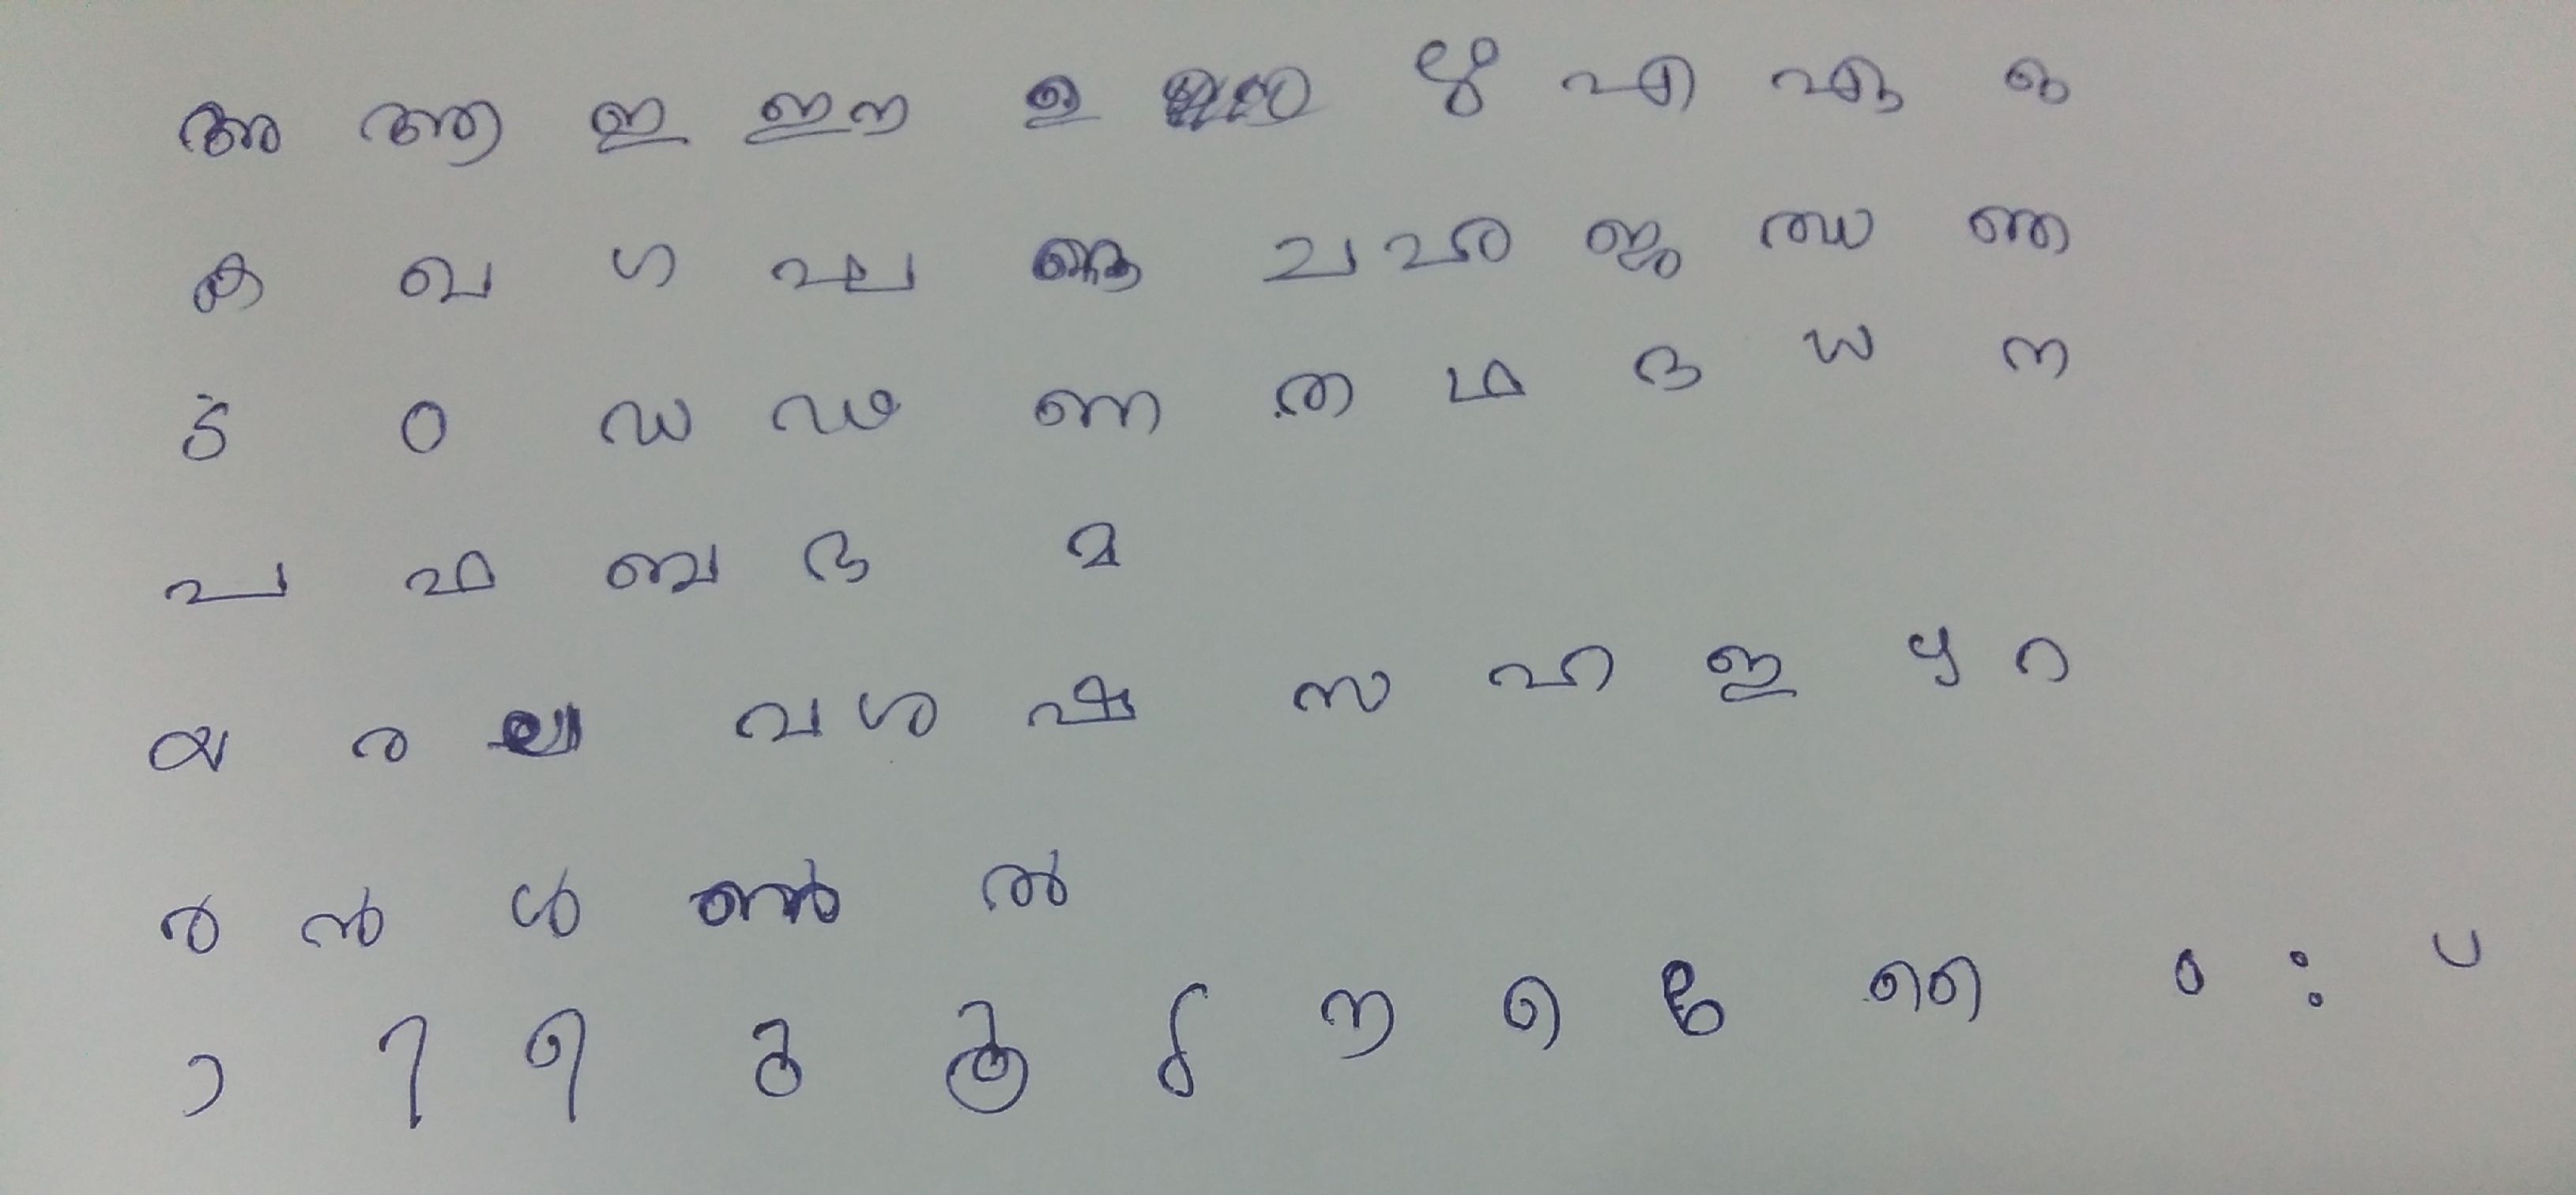 അ ആ ഇ ഈ ഉ ഋ എ ഏ ഒ
ക ഖ ഗ ഘ ങ ച ഛ ജ ഝ ഞ
ട ഠ ഡ ഢ ണ ത ഥ ദ ധ ന
പ ഫ ബ ഭ മ
യ ര ല വ ശ ഷ സ ഹ ഇ ഴ റ
ർ ൻ ൾ ൺ ൽ
ാ ി ീ ു ൂ ൃ ൗ െ േ ൈ ം ഃ ്